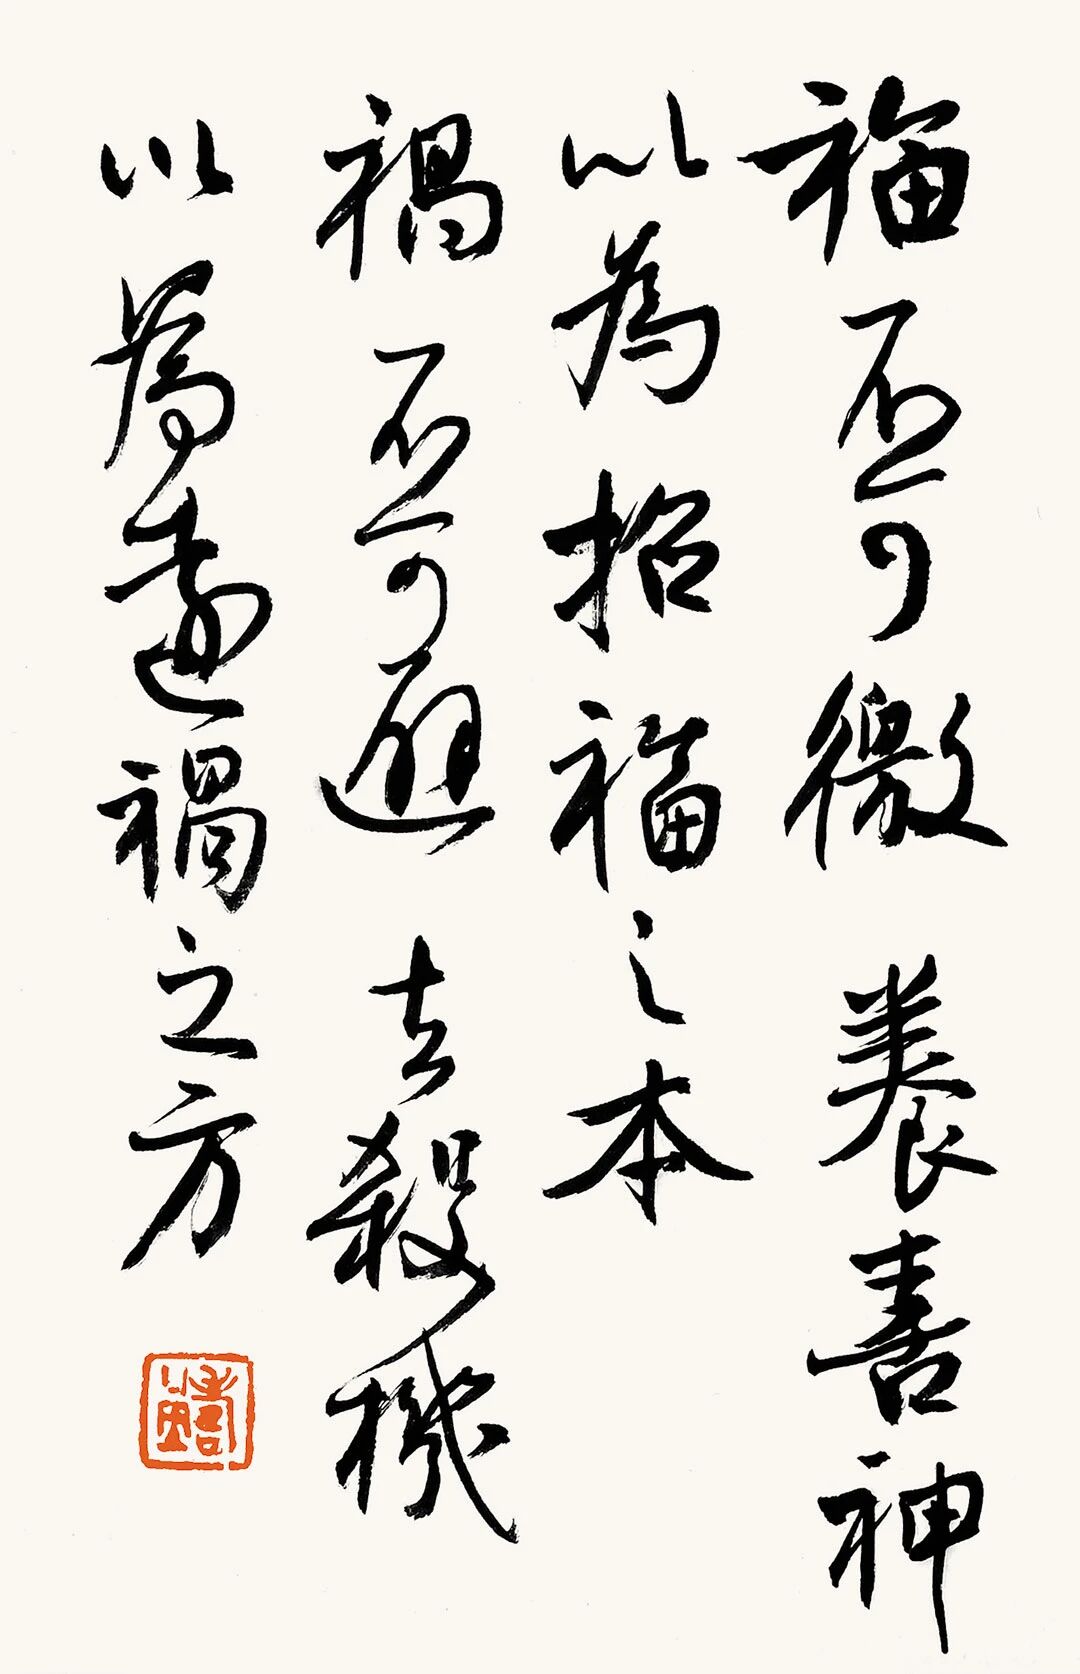 福不可徼養喜神
以為招福之本
禍不可避去殺機
以為遠禍之方